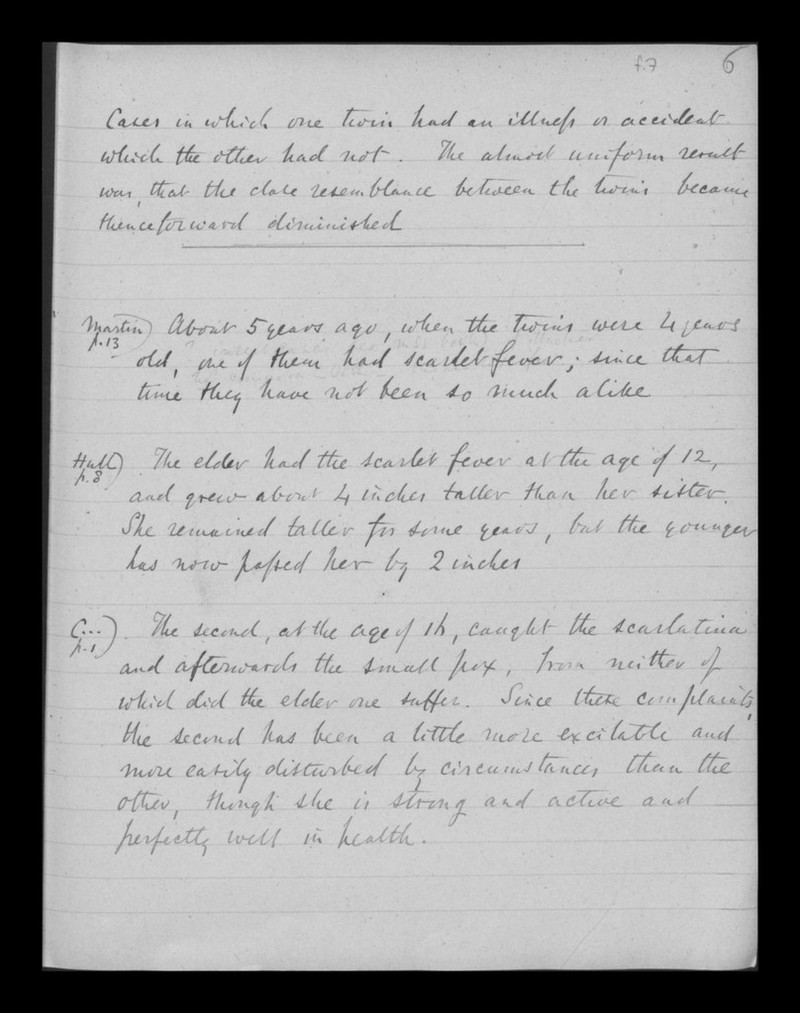 f.7 6
Cases in which one twin had an illneſs or accident
which the other had not. The almost uniform result
was, that the close resemblance between the twins became
thenceforward diminished
Martin) About 5 years ago, when the twins were 4 years
p.13
old, one of them had scarlet fever; since that
time they have not been so much alike
Hull) The elder had the scarlet fever at the age of 12,
p.8
and grew about 4 inches taller than her sister.
She remained taller for some years, but the younger
has now paſsed her by 2 inches
C...) The second, at the age of, caught the scarlatina
p.1
and afterwards the small pox, from neither of
which did the elder one suffer. Since these complaints,
the second has been a little more excitable and
more easily disturbed by circumstances than the
other, though she is strong and active and
perfectly well in health.